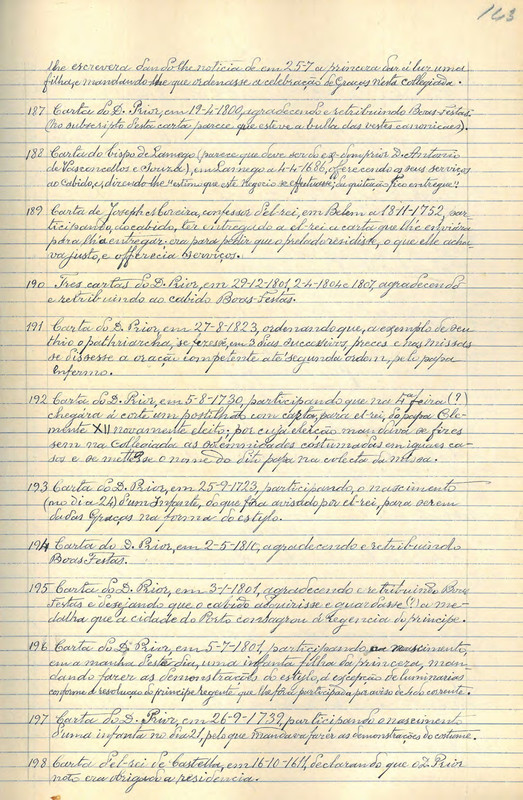 143
lhe escrevera dando lhe noticia de em 25-7 a princeza dar á luz uma
filha, e mandando lhe que ordenasse a celebração de Graças nesta collegiada.
187 Carta do D. Prior, em 19-4-1800, agradecendo e retribuindo Boas-Festas.
(No subscripto desta carta parece que esteve a bulla das vestes canonicaes).
188 Carta do bispo de Lamego (parece que deve ser do ex-dom prior D. Antonio
de Vasconcellos e Souza), em Lamego a 4-4-1686, offerecendo os seus serviços
ao cabido, e, dizendo-lhe "estimo que este negocio se effectuasse; da quitação fico entregue".
189 Carta de Joseph Moreira, confessor d'el-rei, em Belem a 18-11-1752, par-
ticipando, ao cabido, ter entregado a el-rei a carta que lhe enviára
para lh'a entregar: era para pedir que o prelado residisse, o que elle acha-
va justo, e offerecia serviços.
190 Tres cartas do D. Prior, em 29-12-1801, 2-4-1804 e 1807, agradecendo
e retribuindo ao cabido Boas-Festas.
191 Carta do D. Prior, em 27-8-1823, ordenando que, a exemplo de seu
thio o pathriarcha, se fezesse, em 3 dias successivos, preces e nas missas
se dissesse a oração competente até segunda ordem, pelo papa
enfermo.
192 Carta do D. Prior, em 5-8-1730, participando que na 4ª feira (?)
chegára á corte um postilhão com carta, para el-rei, do papa Cle-
mente XII novamente eleito; por cuja eleição mandava se fizes
sem na Collegiada as solemnidades costumadas em iguaes ca-
sos e se mettesse o nome do dito papa na colecta da missa.
193 Carta do D. Prior, em 25-9-1723, participando, o nascimento
(no dia 24) d'um Infante, do que fôra avisado por el-rei, para serem
dadas Graças na forma do estylo.
194 Carta do D. Prior, em 2-5-1810, agradecendo e retribuindo
Boas Festas.
195 Carta do D. Prior, em 3-1-1801, agradecendo e retribuindo Boas
Festas e desejando que o cabido adquirisse e guardasse (?) a me-
dalha que a cidade do Porto consagrou á Regencia do principe.
196 Carta do D. Prior, em 5-7-1801, participando o nascimento,
em a manhã d'este dia, uma infanta filha da princeza, man-
dando fazer as demonstração do estylo, á excepção de luminarias
conforme á resolução do principe regente que lhe fora participada, por aviso de 4 do corrente.
197 Carta do D. Prior, em 26-9-1739, participando o nascimento
d'uma infanta no dia 21, pelo que mandava fazer as demonstrações do costume.
198 Carta d'el-rei de Castella, em 16-10-1611, declarando que o D. Prior
não era obrigado a residencia.